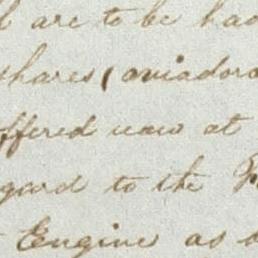 are to be had
shares (aviadora
offered now at
gard to the
Engine as